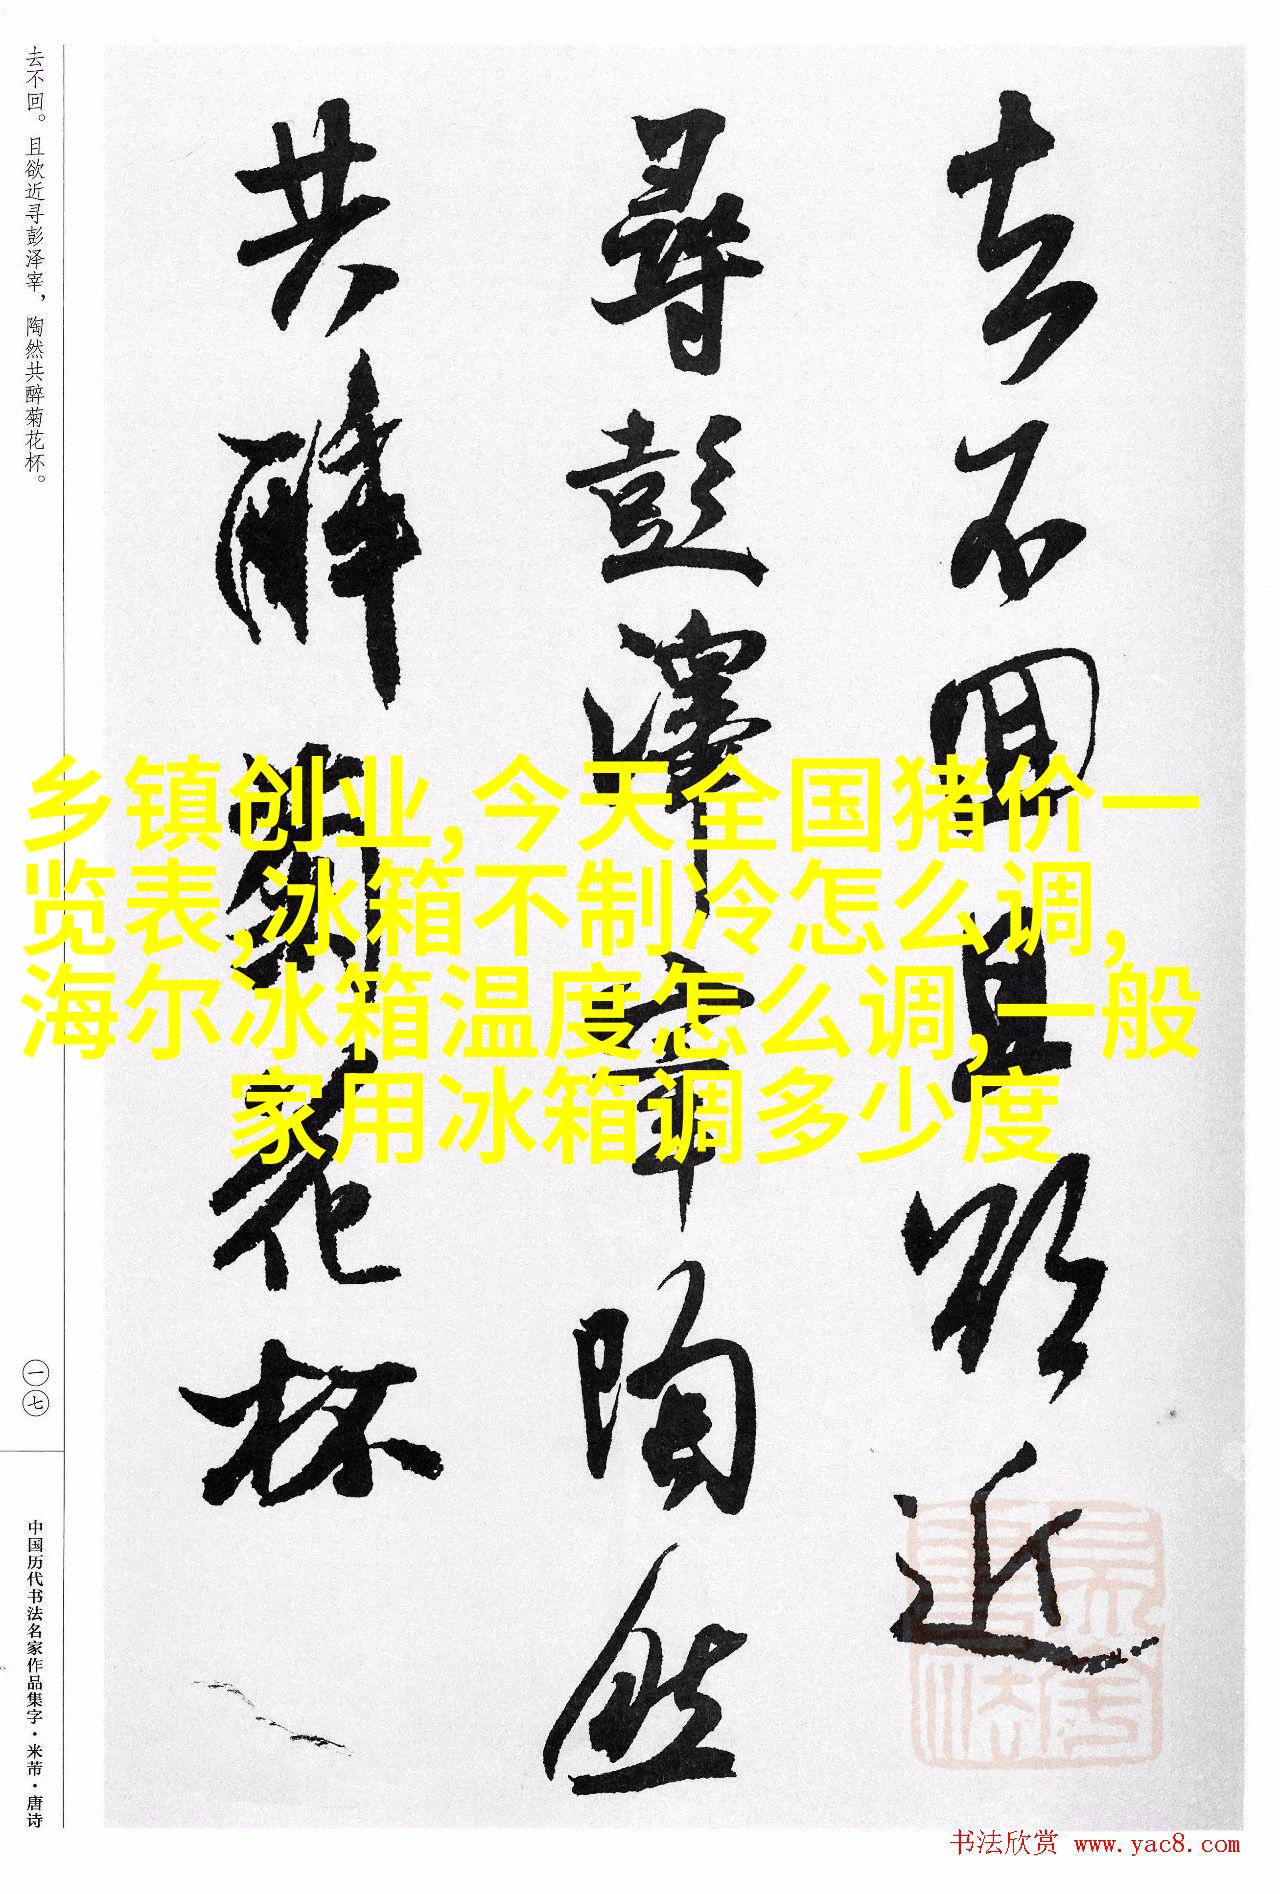 去不回且欲近
尋彭澤宰陶然
共醉菊花杯
去不回。且欲近寻彭泽宰，陶然共醉菊花杯。
一七
中国历代书法名家作品集字·米芾·唐诗
乡镇创业,今天全国猪价一
览表,冰箱不制冷怎么调,
海尔冰箱温度怎么调,一般
家用冰箱调多少度
书法欣赏 www.yac8.com